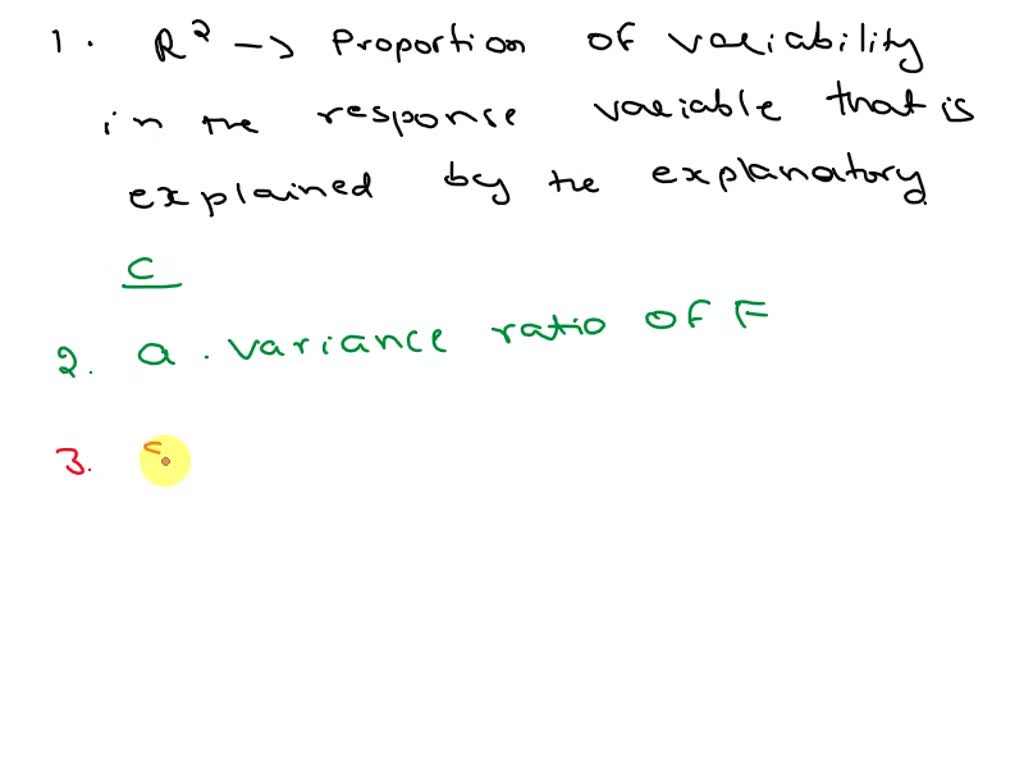 1. R² -> Proportion of variability
in the response variable that is
explained by the explanatory.
c
2. a. variance ratio of F
3.